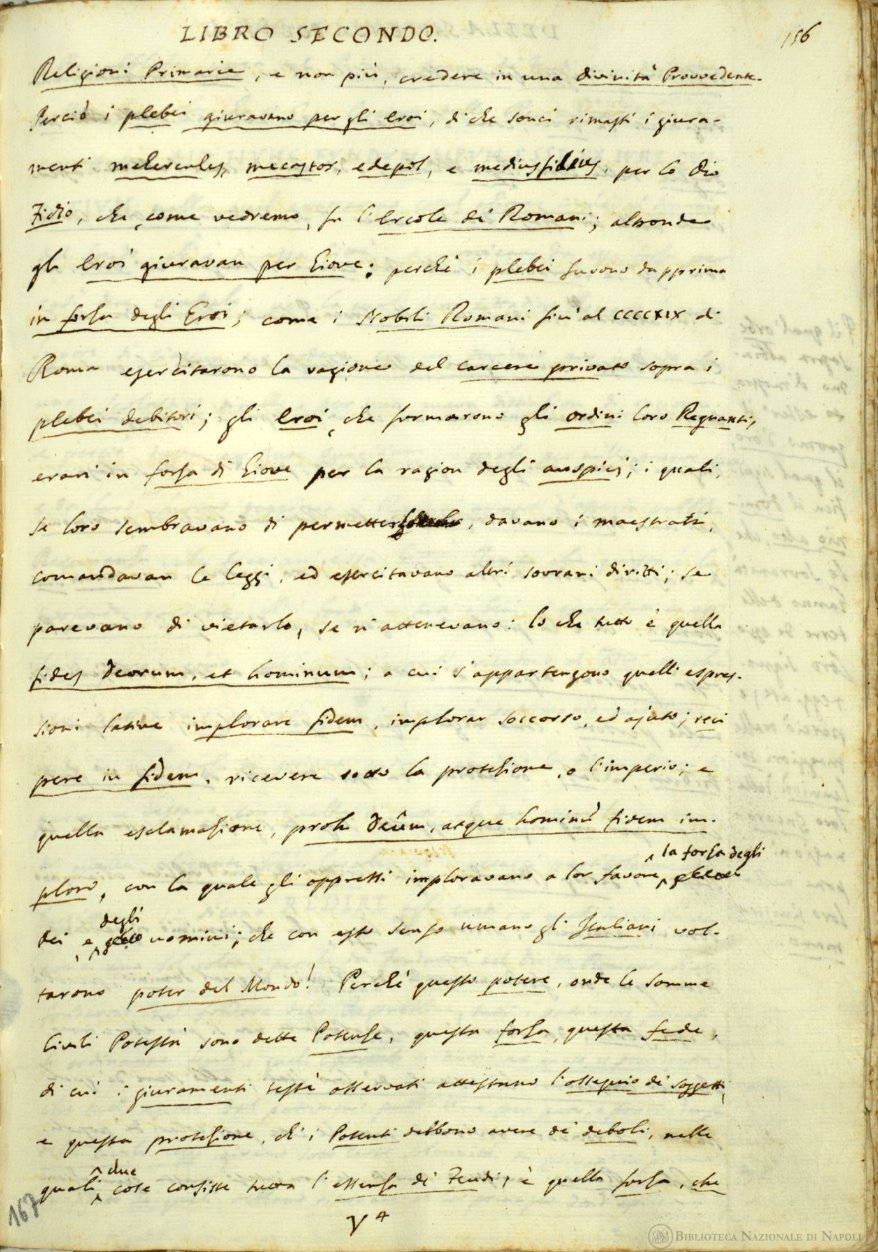 LIBRO SECONDO.
156
Religioni Primarie, e non più, credere in una divinità Provvedente.
Perciò i plebei giuravano per gli Eroi, di che sonci rimasti i giura-
menti mehercules, mecastor, edepol, e mediusfidius, per lo dio
Fidio, che, come vedremo, fu l'Ercole de' Romani; altronde
gli Eroi giuravan per Giove: perchè i plebei furono dapprima
in forza degli Eroi; come i Nobili Romani fin' al CCCCXIX di
Roma esercitarono la ragione del carcere privato sopra i
plebei debitori; gli Eroi, che formarono gli ordini loro Regnanti,
eran in forza di Giove per la ragion degli auspicj; i quali,
se loro sembravano di permetter, davano i maestrati,
comandavan le leggi, ed esercitavano altri sovrani diritti; se
parevano di vietarlo, se n'astenevano: lo che tutto è quella
fides Deorum, et hominum; a cui s'appartengono quelle espres-
sioni latine implorare fidem, implorar soccorso, ed ajuto; reci
pere in fidem, ricevere sotto la protezione, o l'imperio; e
quella esclamazione, proh Deûm, atque hominû fidem im-
ploro, con la quale gli oppressi imploravano a lor favore la forza degli
dei, e degli uomini; che con esto senso umano gl' Italiani vol-
tarono poter del Mondo! Perchè questo potere, onde le somme
Civili Potestà sono dette Potenze, questa forza, questa fede,
di cui i giuramenti testè osservati attestano l'ossequio de' soggetti,
e questa protezione, ch' i Potenti debbono avere de' deboli, nelle
quali due cose consiste tutta l'essenza de' Feudi, è quella forza, che
V 4
167
BIBLIOTECA NAZIONALE DI NAPOLI